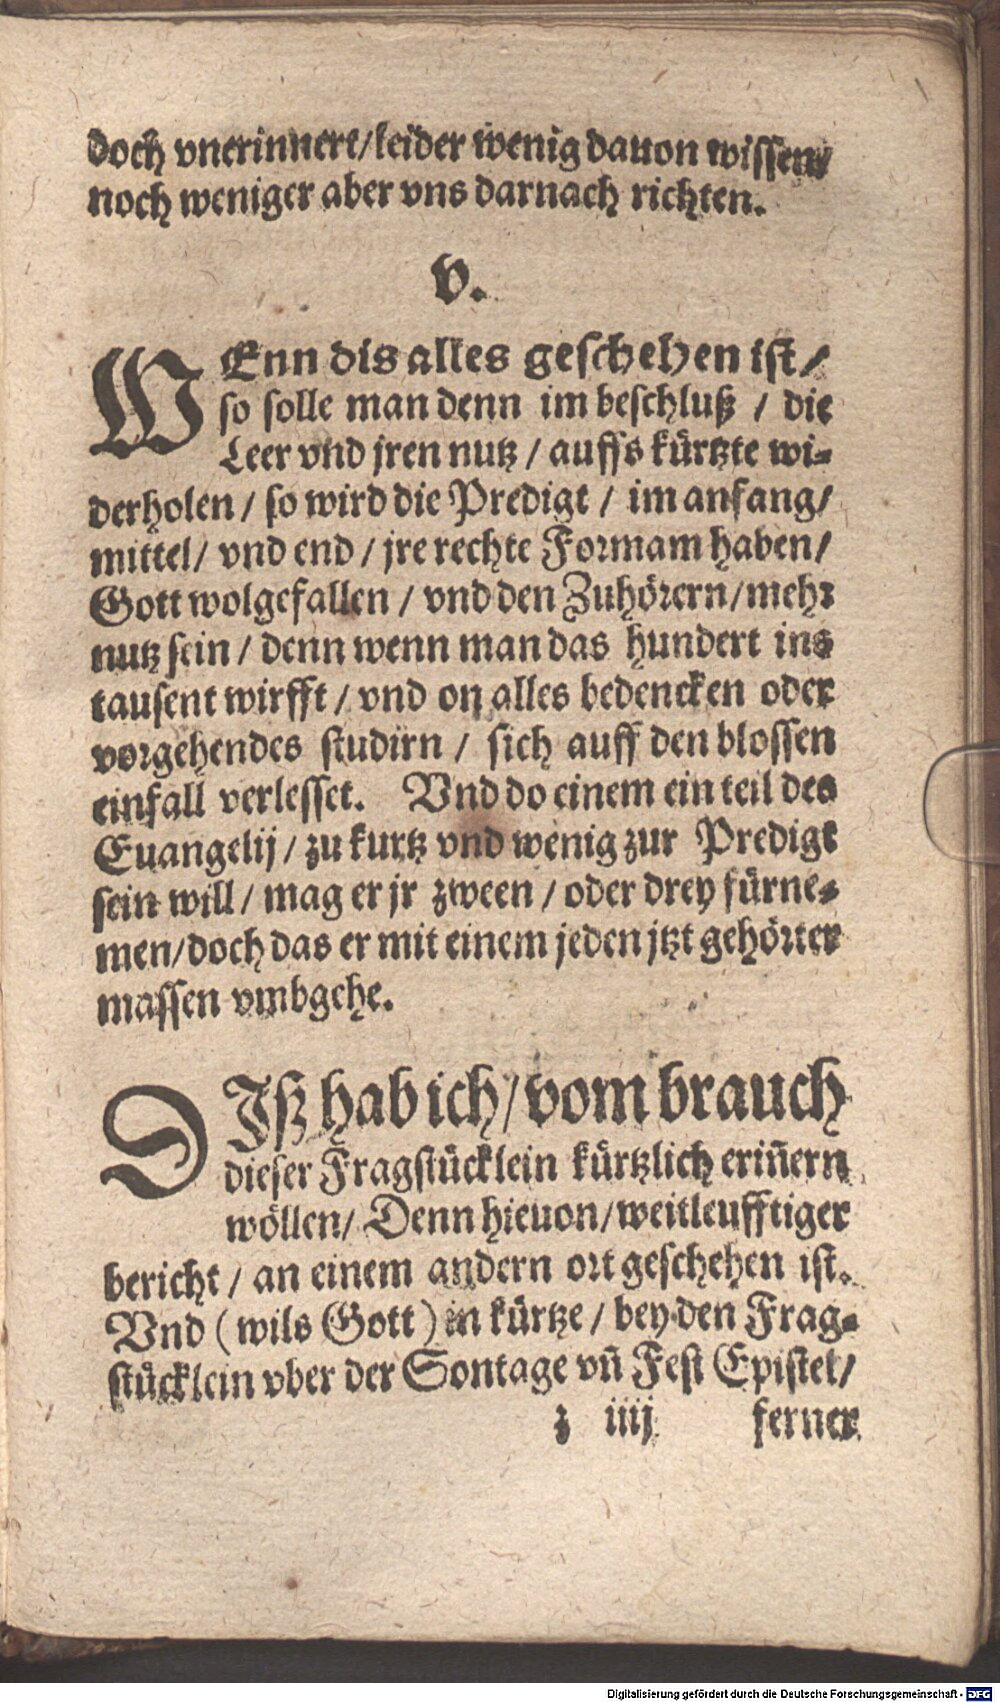 doch vnerinnert/leider wenig dauon wissen/
noch weniger aber vns darnach richten.
V.
WEnn dis alles geschehen ist/
so solle man denn im beschluß / die
Leer vnd jren nutz / auffs kürtzte wi-
derholen / so wird die Predigt / im anfang/
mittel/ vnd end / jre rechte Formam haben/
Gott wolgefallen / vnd den Zuhörern/mehr
nutz sein / denn wenn man das hundert ins
tausent wirfft / vnd on alles bedencken oder
vorgehendes studirn / sich auff den blossen
einfall verlesset. Vnd do einem ein teil des
Euangelij / zu kurtz vnd wenig zur Predigt
sein will / mag er jr zween / oder drey fürne-
men/doch das er mit einem jeden jtzt gehörter
massen vmbgehe.
DIß hab ich/vom brauch
dieser Fragstücklein kürtzlich erin̄ern
wöllen/ Denn hieuon/weitleufftiger
bericht / an einem andern ort geschehen ist.
Vnd (wils Gott) in kürtze / bey den Frag-
stücklein vber der Sontage vn̄ Fest Epistel/
z iiij ferner
Digitalisierung gefördert durch die Deutsche Forschungsgemeinschaft - DFG